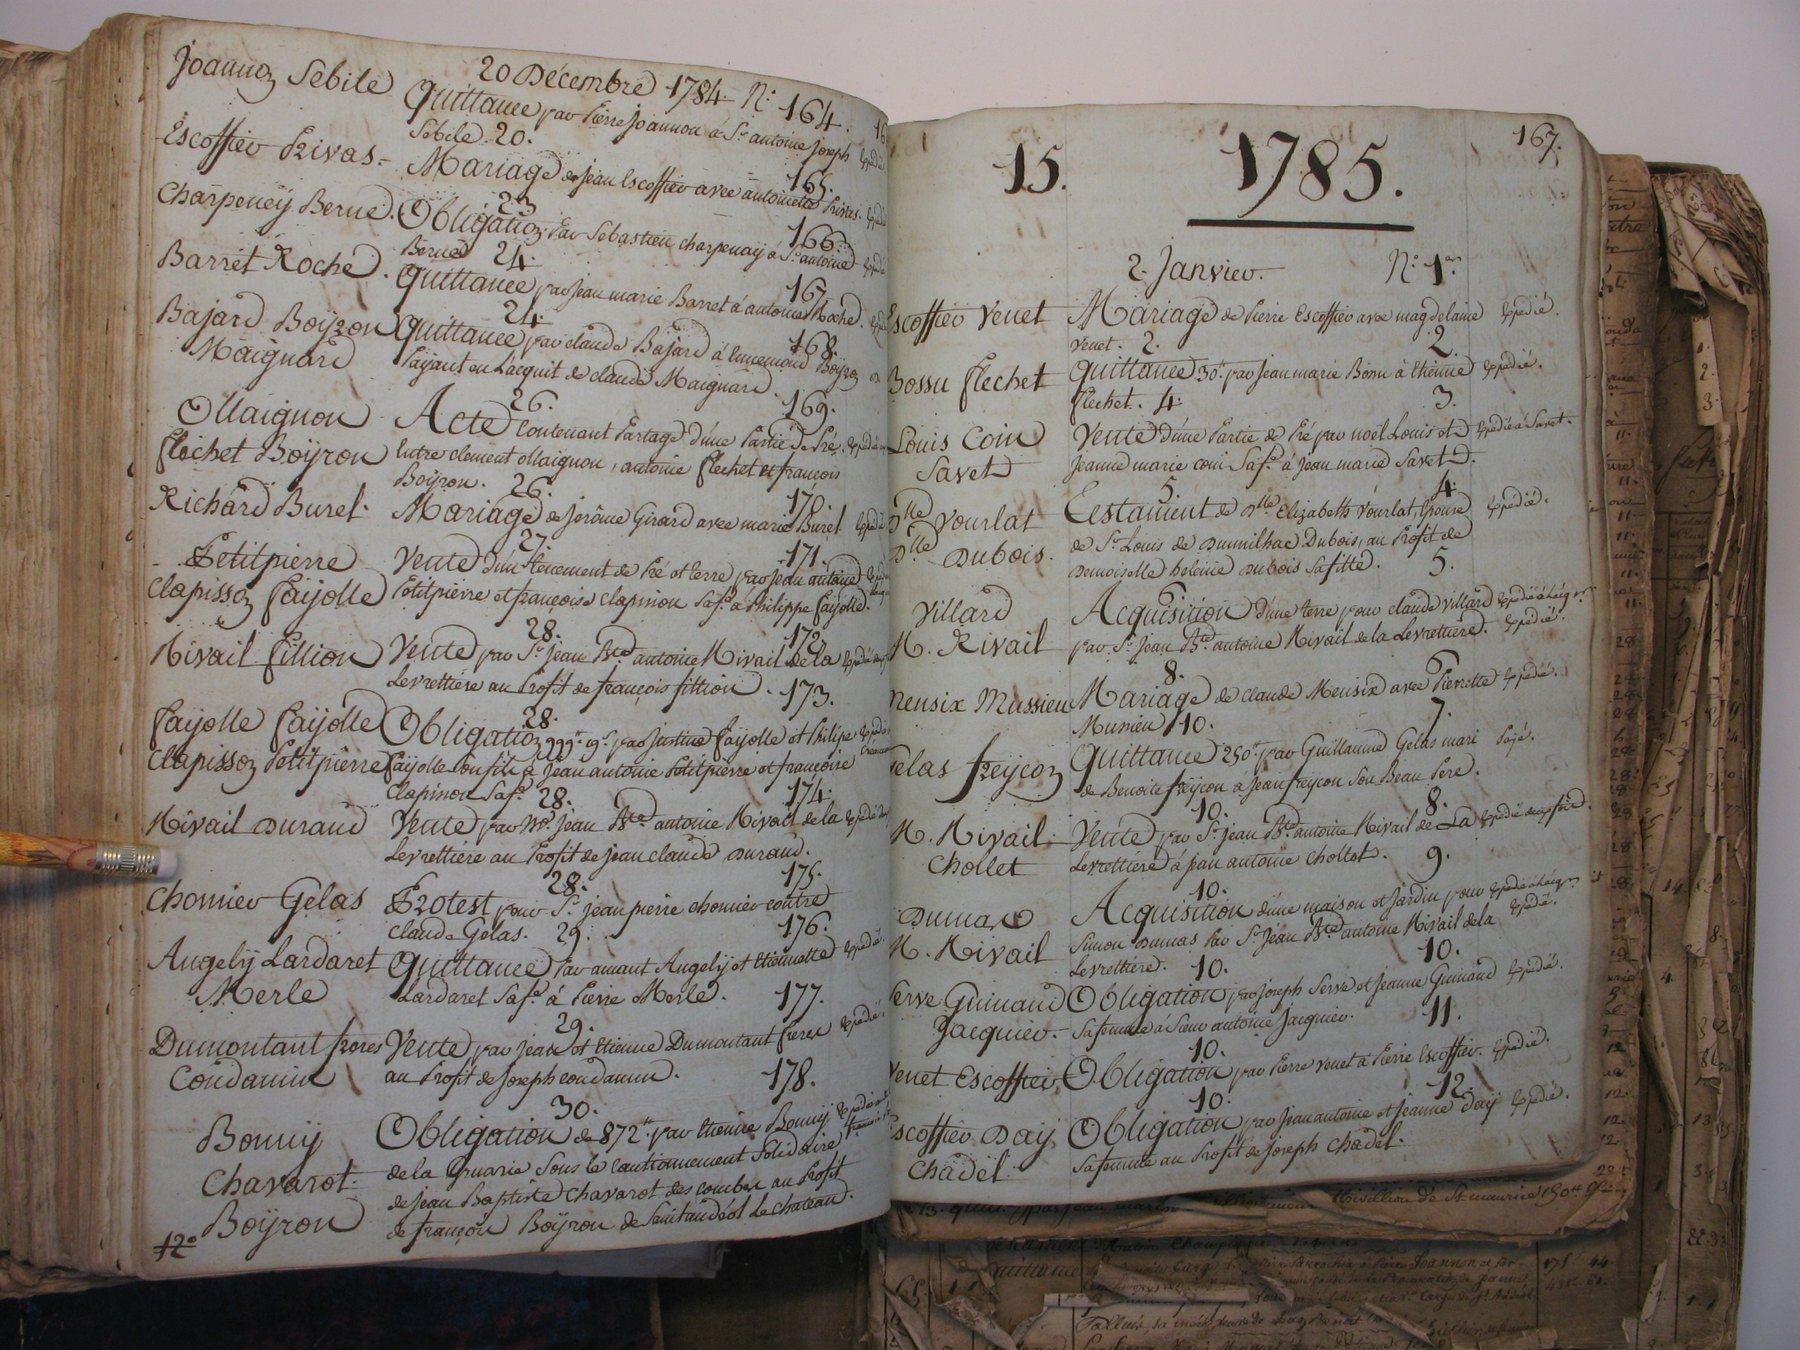 20 Décembre 1784. N.º 164.
Joannon Sebile Quittance par Pierre Joannon à Sr. antoine Joseph
Sebile. 20. 165.
Escoffier Privas. Mariage de Jean Escoffier avec antoinette Privas.
23. 166.
Charpeney Berne. Obligation Par Sebastien Charpenay à Sr. antoine
Berne 24. 167
Barret Roche. Quittance par Jean marie Barret à antoine Roche.
24. 168.
Bajard Boyron Quittance par claude Bajard à Ennemond Boyron
Maignard Payant en L'acquit de claude Maignard.
26. 169.
Maignon Acte Contenant Partage d'une Partie De Pré,
flechet Boyron Entre clement Maignon, antoine flechet et françois
Boyron. 26. 170.
Richard Burel. Mariage de Jerôme Girard avec marie Burel
27. 171.
Petitpierre Vente d'un tenement de Pré et terre par Jean antoine
Clapisson fayolle Petitpierre et françoise Clapisson Sa fe. à Philippe fayolle.
28. 172.
Rivail fillion Vente par Sr. Jean Bte. antoine Rivail de la
Levrettiere au Profit de françois fillion. 173.
28.
fayolle fayolle Obligation 999lt. 19s. par Justine fayolle et Philipe
Clapisson Petitpierre fayolle Son fils à Jean antoine Petitpierre et françoise
Clapisson Sa fe. 28. 174.
Rivail Durand Vente par Mr. Jean Bte. antoine Rivail de la
Levrettiere au Profit de Jean claude Durand.
28. 175.
Chomier Gelas Protest pour Sr. Jean pierre chomier contre
claude Gelas. 29. 176.
Angely Lardaret Quittance Par amant Angely et Etiennette Expedié
Merle Lardaret Sa fe. à Pierre Merle. 177.
29.
Dumontant freres Vente par Jean et Etienne Dumontant freres Expedié.
Condamin au Profit de Joseph condamin. 178.
30.
Bonny Obligation de 872lt. par Etienne Bonny
Chavarot. de la Sous le Cautionnement Solidaire
de Jean Baptiste Chavarot des combes au Profit
Boyron de françois Boyron de Saintandéol Le chateau.
12e
167.
15. 1785.
2. Janvier. N.º 1er
Escoffier Venet Mariage de Pierre Escoffier avec magdelaine Expedié.
Venet. 2. 2.
Bossu flechet Quittance 30lt. par Jean marie Bossu à Etienne Expedié.
flechet. 4. 3.
Louis Coin Vente d'une Partie de Pré par noël Louis et Expedié à Savet.
Savet Jeanne marie coin Sa fe. à Jean marie Savet.
5. 4.
Dlle Vourlat Testament de Dlle Elizabeth Vourlat, Epouse Expedié.
Dlle Dubois. de Sr. Louis de Dumilhac Dubois, au Profit de
Demoiselle heleine Dubois Sa fille. 5.
Villard Acquisition d'une terre pour claude Villard
M. Rivail par Sr. Jean Bte. antoine Rivail de la Levrettiere. Expedié.
8.
Meusix Mussieu Mariage de claude Meusix avec Pierrette Expedié.
Mussieu 10. 7.
Gelas freycon Quittance 250lt. par Guillaume Gelas mari Payé.
de Benoite freycon à Jean freycon Son Beau Pere.
10. 8.
M. Rivail Vente par Sr. Jean Bte. antoine Rivail de La
Chollet Levrettiere à Jean antoine Chollet. 9.
10.
Dumas Acquisition d'une maison et Jardin pour
M. Rivail Simon Dumas Par Sr. Jean Bte. antoine Rivail de la Expedié.
Levrettiere. 10. 10.
Serve Guinand Obligation par Joseph Serve et Jeanne Guinand Expedié.
Jacquier. Sa femme à Sieur antoine Jacquier. 11.
10.
Venet Escoffier, Obligation par Pierre Venet à Pierre Escoffier. Expedié.
10. 12.
Escoffier Day Obligation par Jean antoine et Jeanne Day Expedié.
Chadel Sa femme au Profit de Joseph Chadel.